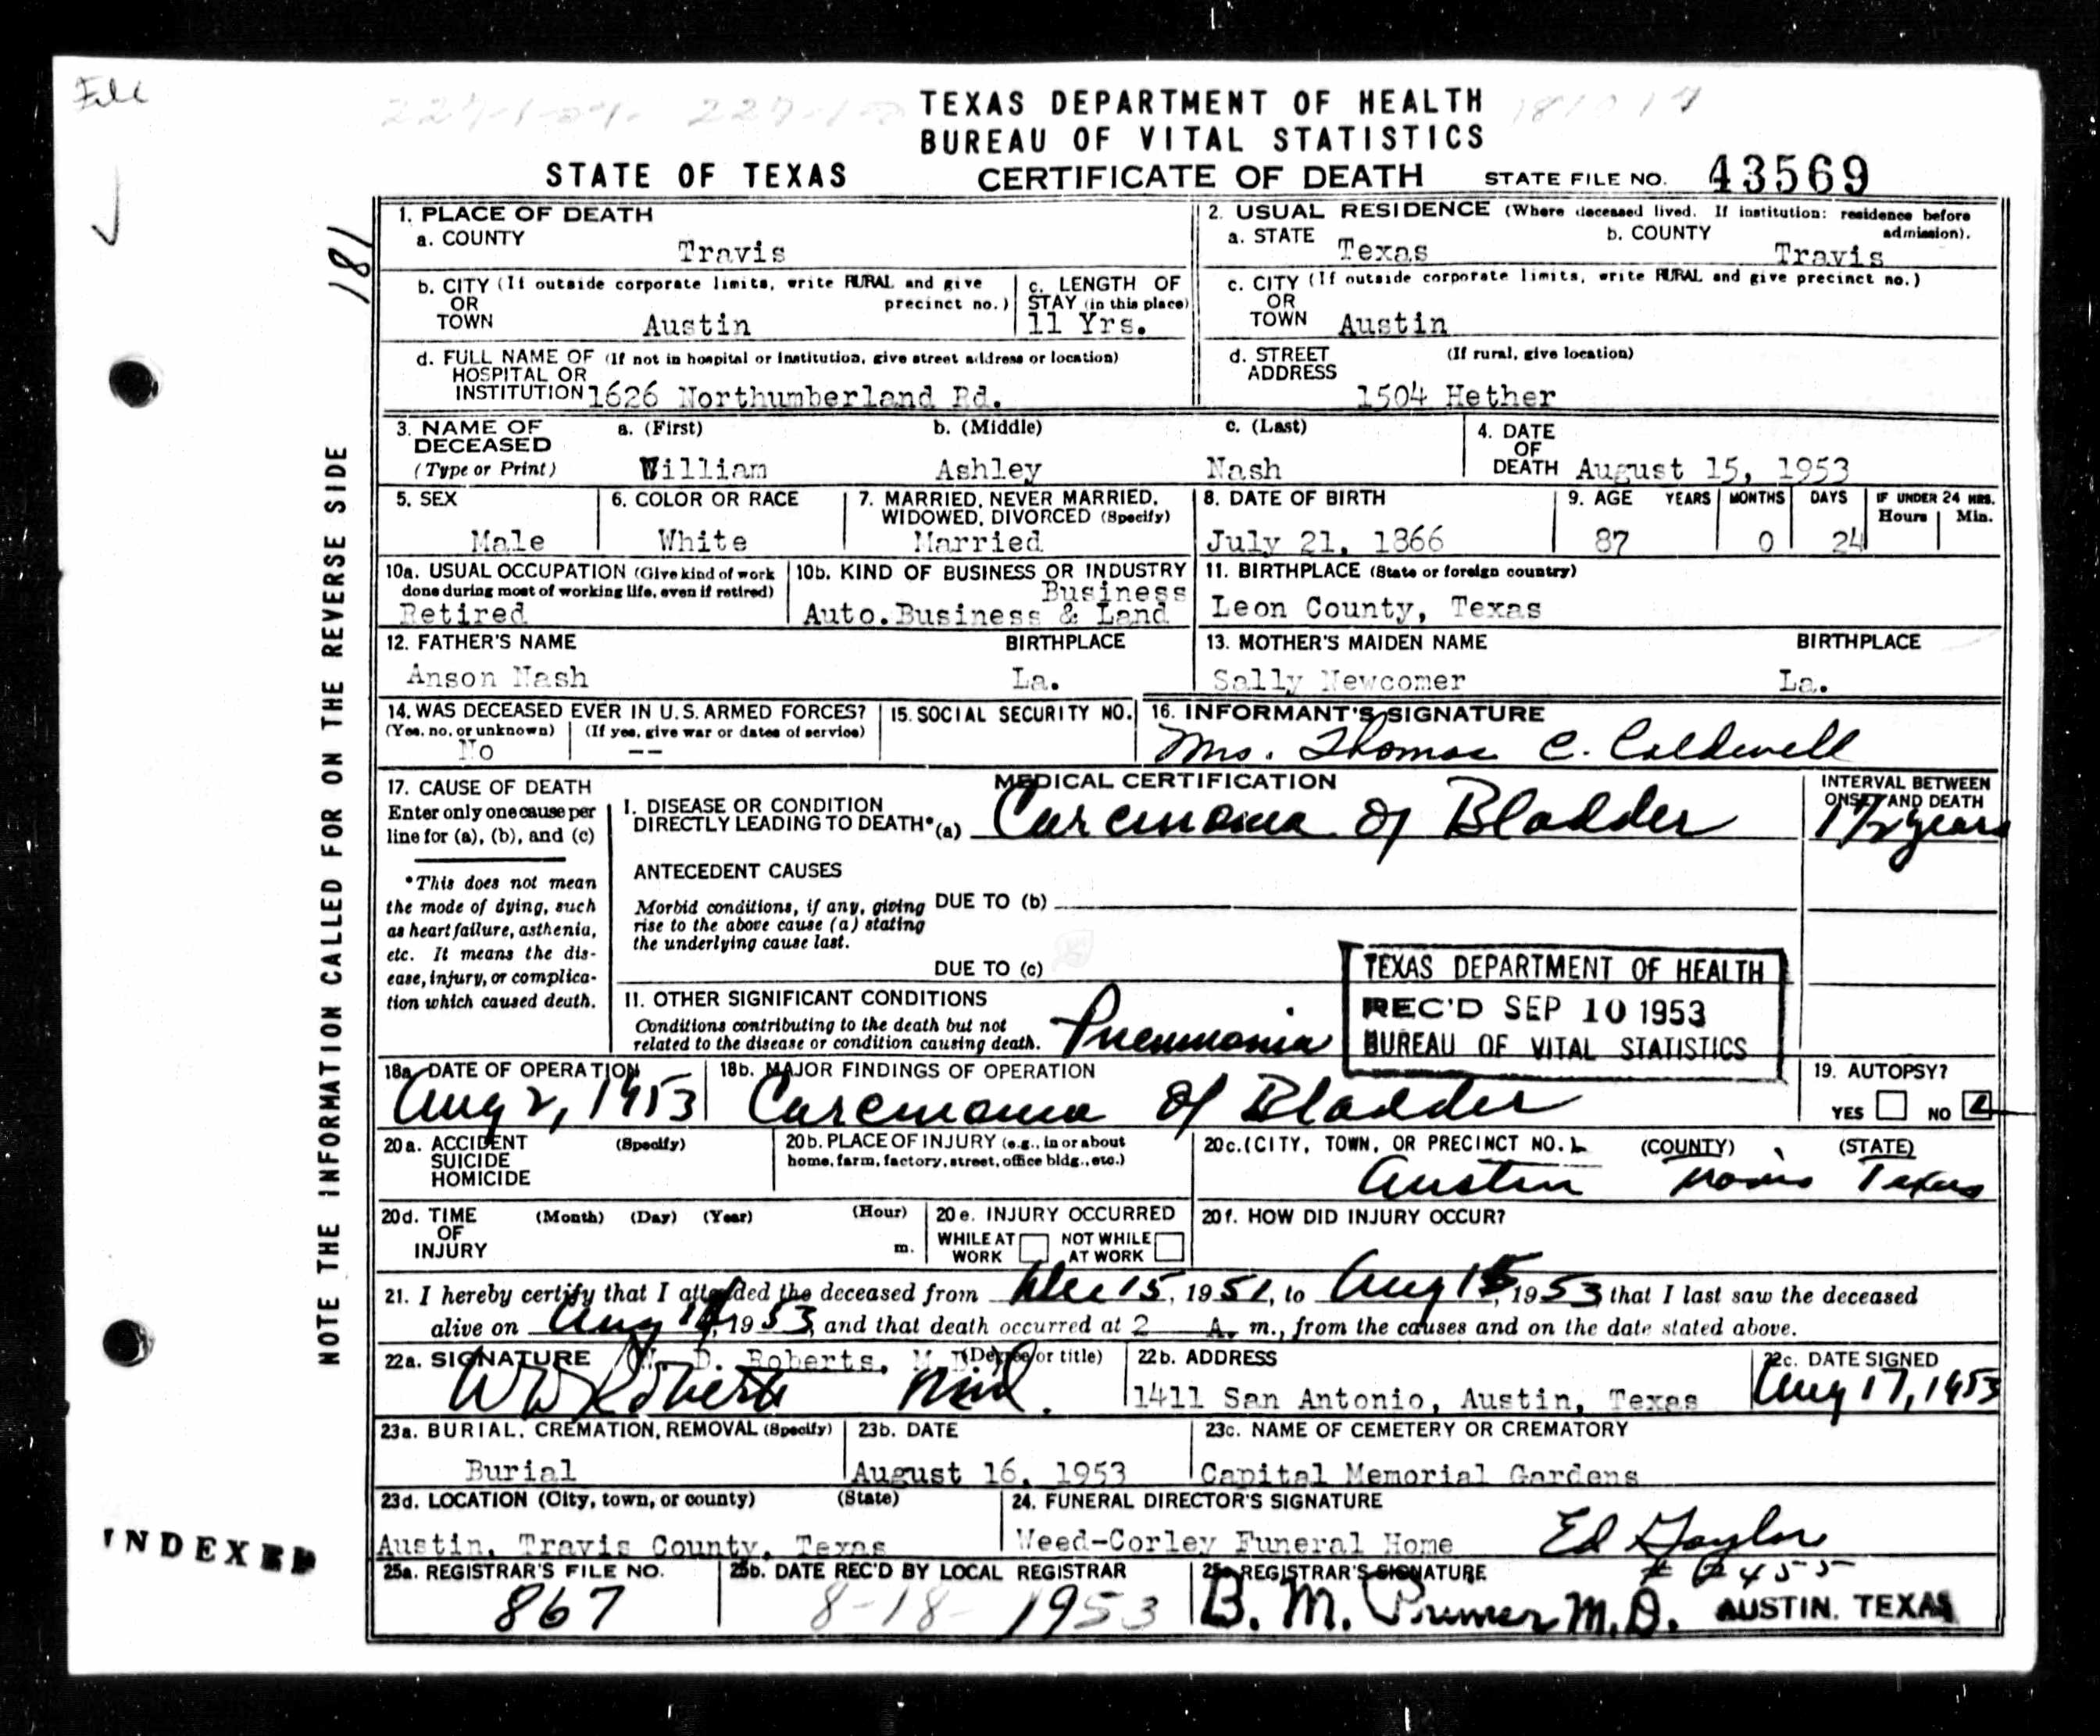 File
TEXAS DEPARTMENT OF HEALTH
BUREAU OF VITAL STATISTICS
STATE OF TEXAS CERTIFICATE OF DEATH STATE FILE NO. 43569
181
NOTE THE INFORMATION CALLED FOR ON THE REVERSE SIDE
INDEXED
1. PLACE OF DEATH
a. COUNTY Travis
2. USUAL RESIDENCE (Where deceased lived. If institution: residence before admission).
a. STATE Texas b. COUNTY Travis
b. CITY (If outside corporate limits, write RURAL and give precinct no.)
OR
TOWN Austin
c. LENGTH OF
STAY (in this place)
11 Yrs.
c. CITY (If outside corporate limits, write RURAL and give precinct no.)
OR
TOWN Austin
d. FULL NAME OF (If not in hospital or institution, give street address or location)
HOSPITAL OR
INSTITUTION 1626 Northumberland Rd.
d. STREET (If rural, give location)
ADDRESS
1504 Hether
3. NAME OF DECEASED (Type or Print)
a. (First) William
b. (Middle) Ashley
c. (Last) Nash
4. DATE
OF
DEATH August 15, 1953
5. SEX
Male
6. COLOR OR RACE
White
7. MARRIED, NEVER MARRIED,
WIDOWED, DIVORCED (Specify)
Married
8. DATE OF BIRTH
July 21, 1866
9. AGE YEARS MONTHS DAYS IF UNDER 24 HRS.
Hours Min.
87 0 24
10a. USUAL OCCUPATION (Give kind of work
done during most of working life, even if retired)
Retired
10b. KIND OF BUSINESS OR INDUSTRY
Business
Auto.Business & Land
11. BIRTHPLACE (State or foreign country)
Leon County, Texas
12. FATHER'S NAME BIRTHPLACE
Anson Nash La.
13. MOTHER'S MAIDEN NAME BIRTHPLACE
Sally Newcomer La.
14. WAS DECEASED EVER IN U.S. ARMED FORCES?
(Yes, no, or unknown) (If yes, give war or dates of service)
No --
15. SOCIAL SECURITY NO.
16. INFORMANT'S SIGNATURE
Mrs. Thomas C. Caldwell
17. CAUSE OF DEATH
Enter only one cause per
line for (a), (b), and (c)
*This does not mean
the mode of dying, such
as heart failure, asthenia,
etc. It means the dis-
ease, injury, or complica-
tion which caused death.
MEDICAL CERTIFICATION
INTERVAL BETWEEN
ONSET AND DEATH
I. DISEASE OR CONDITION
DIRECTLY LEADING TO DEATH* (a) Carcinoma of Bladder 1 1/2 years
ANTECEDENT CAUSES
Morbid conditions, if any, giving
rise to the above cause (a) stating
the underlying cause last.
DUE TO (b)
DUE TO (c)
11. OTHER SIGNIFICANT CONDITIONS
Conditions contributing to the death but not
related to the disease or condition causing death. Pneumonia
TEXAS DEPARTMENT OF HEALTH
REC'D SEP 10 1953
BUREAU OF VITAL STATISTICS
18a. DATE OF OPERATION
Aug 2, 1953
18b. MAJOR FINDINGS OF OPERATION
Carcinoma of Bladder
19. AUTOPSY?
YES NO
20a. ACCIDENT (Specify)
SUICIDE
HOMICIDE
20b. PLACE OF INJURY (e.g., in or about
home, farm, factory, street, office bldg., etc.)
20c. (CITY, TOWN, OR PRECINCT NO.) (COUNTY) (STATE)
Austin Travis Texas
20d. TIME (Month) (Day) (Year) (Hour)
OF
INJURY m.
20e. INJURY OCCURRED
WHILE AT WORK NOT WHILE AT WORK
20f. HOW DID INJURY OCCUR?
21. I hereby certify that I attended the deceased from Dec 15, 1951, to Aug 15, 1953, that I last saw the deceased
alive on Aug 1953, and that death occurred at 2 A. m., from the causes and on the date stated above.
22a. SIGNATURE W. D. Roberts, M.D. (Degree or title)
W D Roberts M.D.
22b. ADDRESS
1411 San Antonio, Austin, Texas
22c. DATE SIGNED
Aug 17, 1953
23a. BURIAL, CREMATION, REMOVAL (Specify)
Burial
23b. DATE
August 16, 1953
23c. NAME OF CEMETERY OR CREMATORY
Capital Memorial Gardens
23d. LOCATION (City, town, or county) (State)
Austin, Travis County, Texas
24. FUNERAL DIRECTOR'S SIGNATURE
Weed-Corley Funeral Home Ed Gaylor
25a. REGISTRAR'S FILE NO.
867
25b. DATE REC'D BY LOCAL REGISTRAR
8-18-1953
REGISTRAR'S SIGNATURE
B. M. Primer M.D. AUSTIN, TEXAS